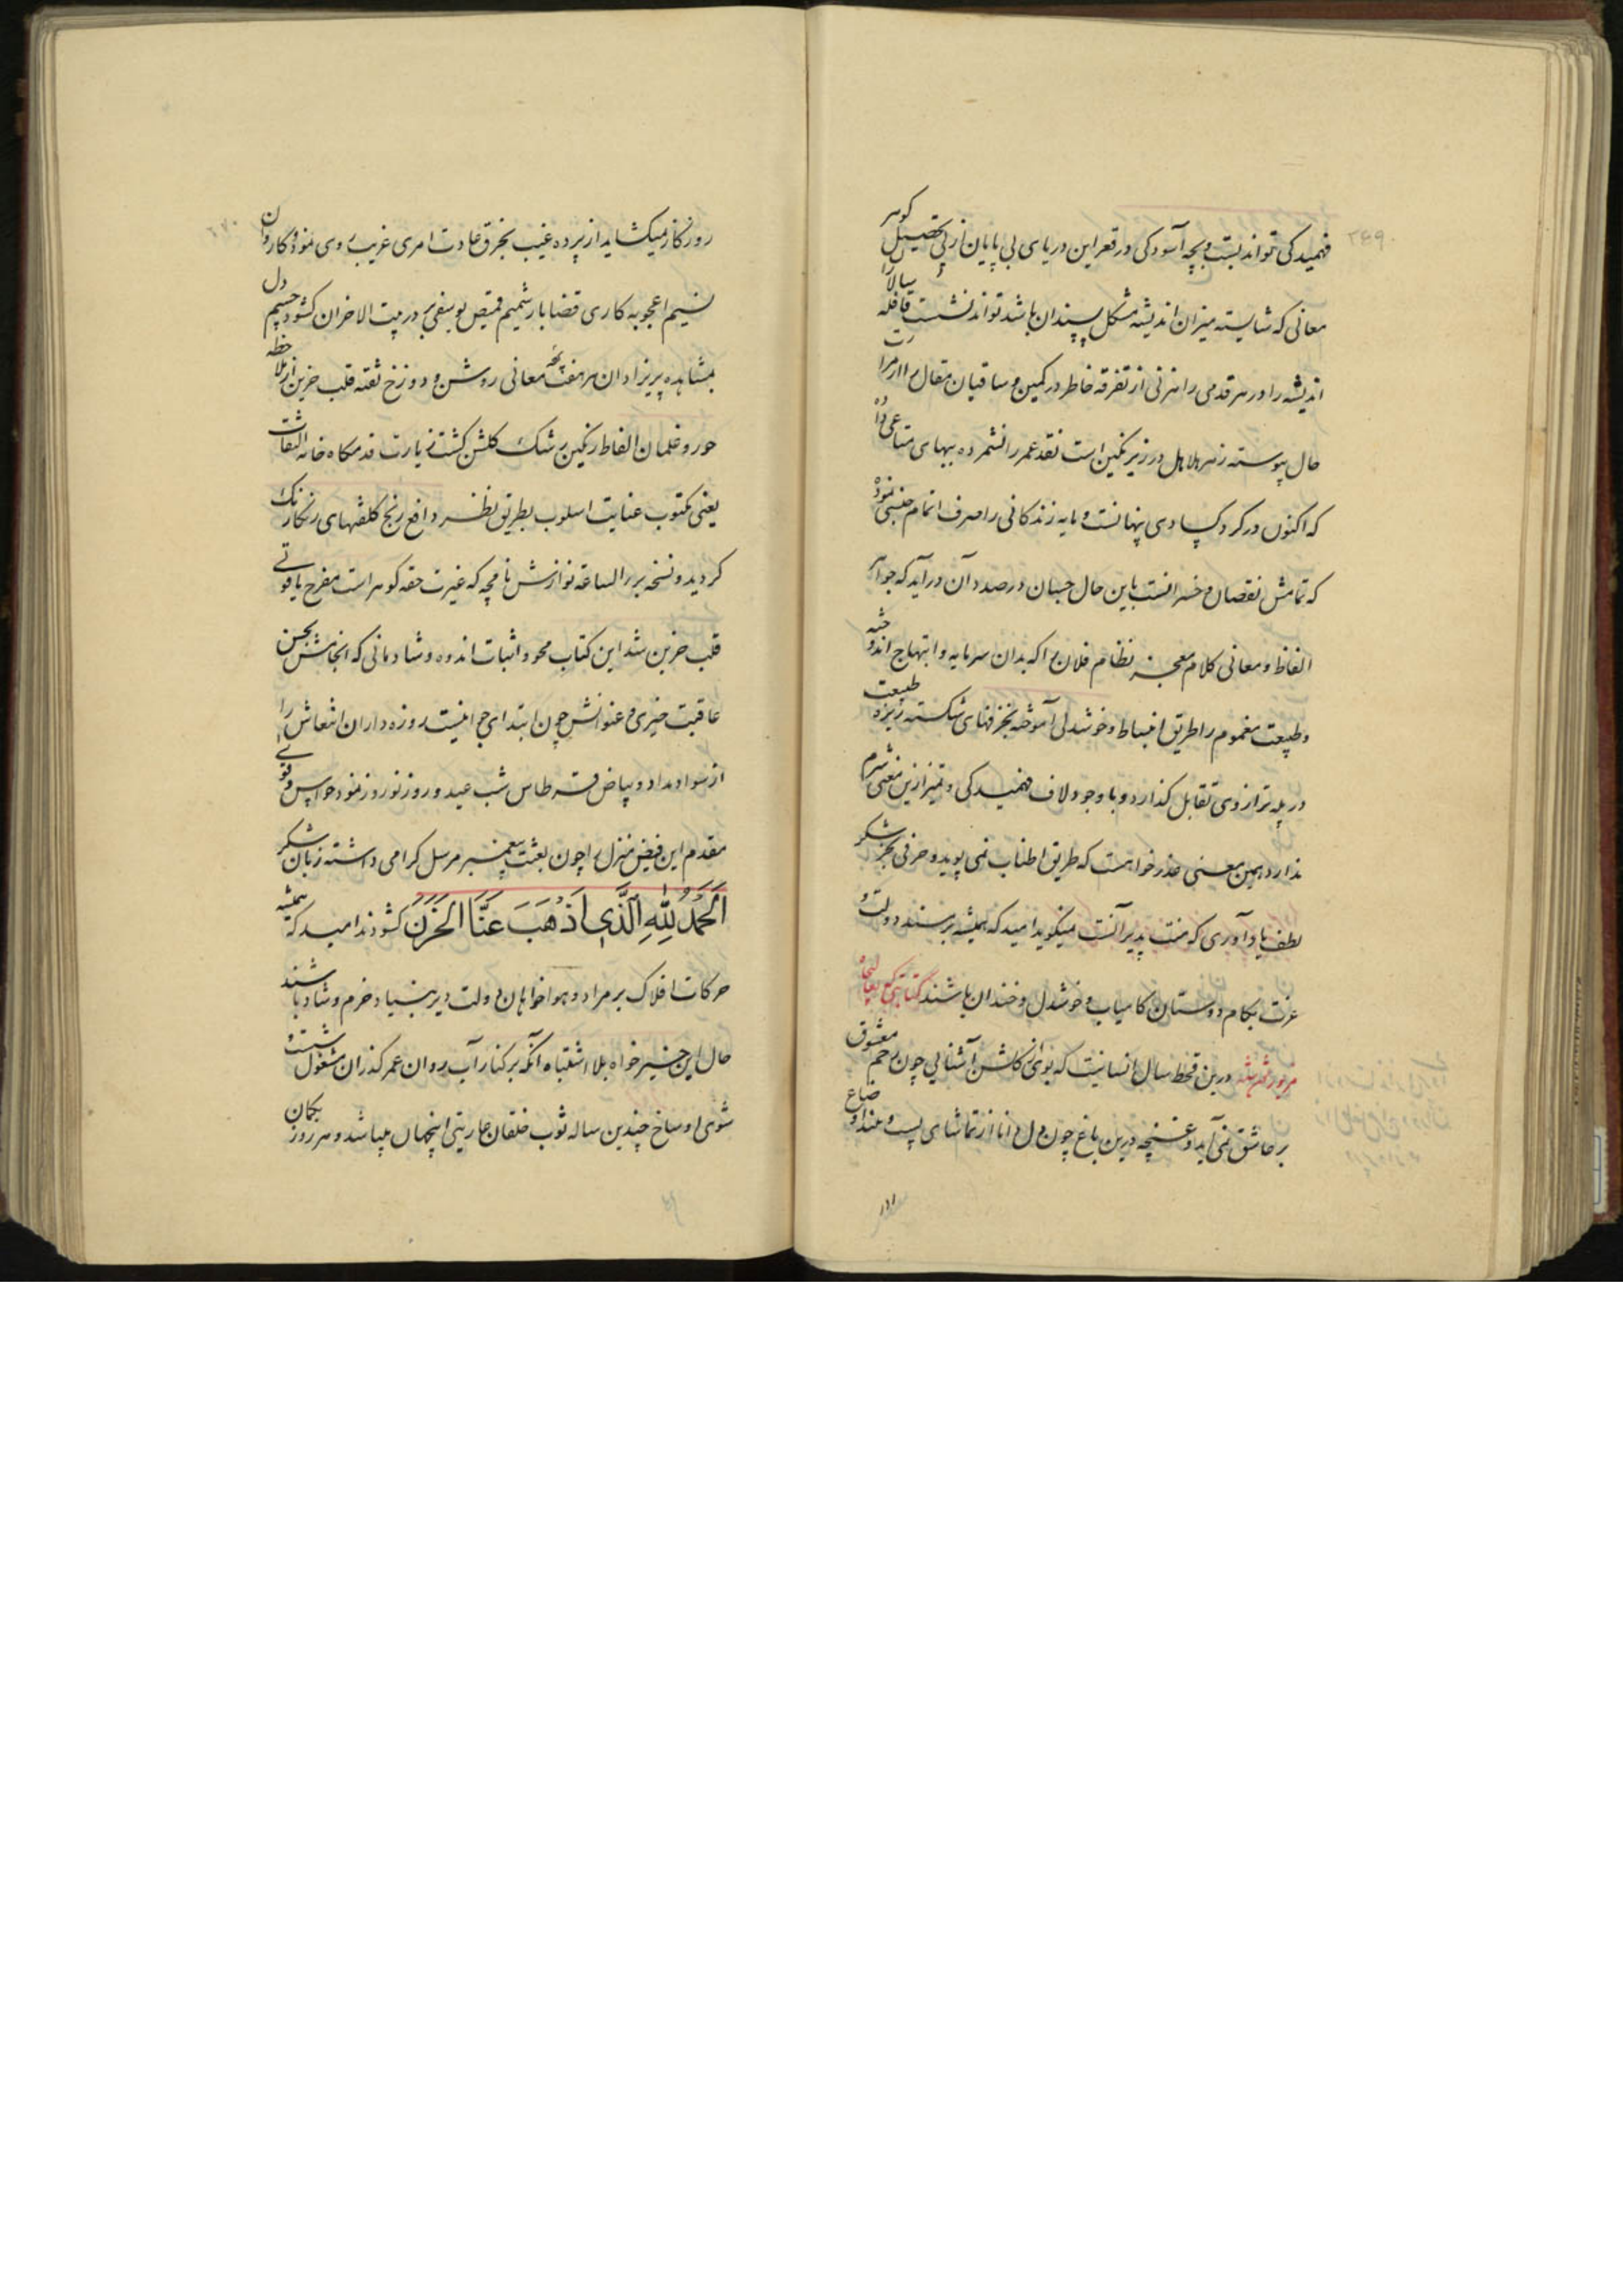 ۲۶۹
فهمیدگی تواند بست و بچه آسودگی در قعر این دریای بی پایان از پی تحصیل گوهر
معانی که شایسته میزان اندیشه مشکل پسندان باشد تواند نشست قافله سالار
اندیشه را در هر قدمی راهزنی از تفرقه خاطر در کمین و ساقیان مقال را از مرارت
حال پیوسته زهر هلاهل در زیر نگین است نقد عمر را نشمرده ببهای متاعی داده
که اکنون در گرد کسادی پنهانست و مایه زندگانی را صرف اتمام جنسی نموده
که تمامش نقصان و خسرانست باین حال چسان در صدد آن درآید که جواهر
الفاظ و معانی کلام معجز نظام فلان را که بدان سرمایه و ابتهاج اندوخته
و طبیعت مغموم را طریق انبساط و خوشدلی آموخته بخزفهای شکسته ریزه طبیعت
در پله ترازوی تقابل گذارد و با وجود لاف فهمیدگی و تمیز ازین معنی شرم
ندارد همین معنی عذرخواهست که طریق اطناب نمی پوید و حرفی بجز شکر
لطف یادآوری که منت پذیر آنست میگوید امید که همیشه بر مسند دولت و
عزت بکام دوستان کامیاب و خوشدل و خندان باشند کتابتی که بعالیجاه
مزبور نوشته درین قحط سال انسانیت که بوی از گلشن آشنایی چون رحم معشوق
بر عاشق نمی آید و غنچه درین باغ چون دل دانا از تماشای پست و بلند اوضاع
۲۷۰
روزگار نمیگشاید از پرده غیب بخرق عادت امری غریب روی نمود و کاروان
نسیم اعجوبه کاری قضا بار شمیم قمیص یوسفی بر در بیت الاحزان گشود چشم دل
بمشاهده پریزادان معانی روشن و دوزخ تفته قلب حزین از ملاحظه
حور و غلمان الفاظ رنگین رشک گلشن گشت زیارت قدمگاه خانه التفات
یعنی مکتوب عنایت اسلوب بطریق نظر دافع رنج کلفتهای رنگارنگ
گردید و نسخه برءالساعه نوازش نامچه که غیرت حقه گوهر است مفرح یاقوتی
قلب حزین شد این کتاب محو و اثبات اندوه و شادمانی که انجامش بحسن
عاقبت خیری و عنوانش چون ابتدای جوانیست روزه داران انتعاش را
از سواد مداد و بیاض قرطاس شب عید و روز نوروز نمود حواس قوی
مقدم این فیض منزل را چون بعثت پیغمبر مرسل گرامی داشته زبان بشکر
اَلْحَمْدُ لِلّٰهِ الَّذِی اَذْهَبَ عَنَّا الْحَزَنَ گشودند امید که همیشه
حرکات افلاک بر مراد و هواخواهان دولت دیر بنیاد خرم و شاد باشند
حال این خیرخواه بلا اشتباه آنکه بر کنار آب روان عمر گذران مشغول شست و
شوی اوساخ چندین ساله ثوب خلقان عاریتی اینجهان میباشد و هر روز بگمان